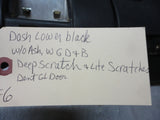 Dash Lower black
w/o Ash, w G D & B
Deep Scratch & Lite Scratches
Dent Cl Door
6